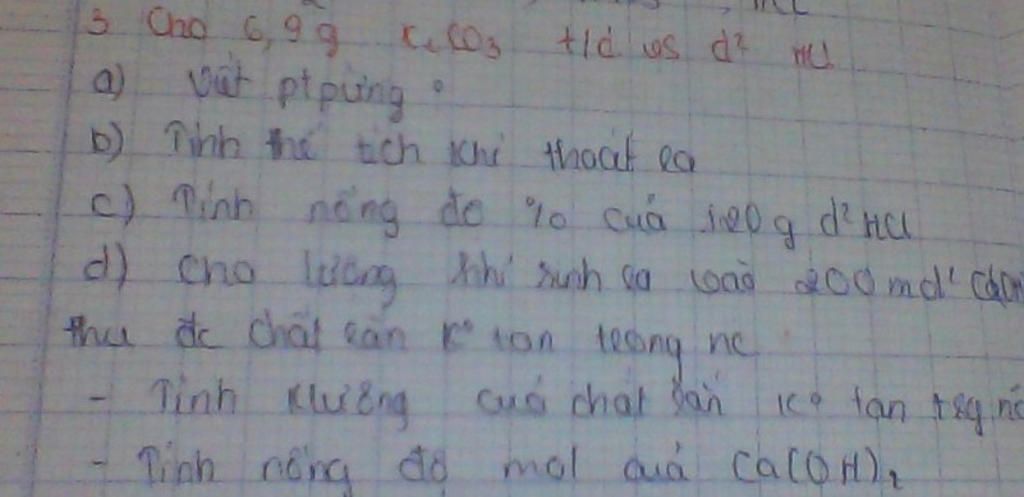 3 Cho 6,9g K₂CO₃ t/d vs d² HCl
a) Viết ptpứng
b) Tính thể tích khí thoát ra
c) Tính nồng độ % của 120g d² HCl
d) Cho lượng khí sinh ra vào 200ml d²
thu đc chất rắn k° tan trong nc
- Tính klượng của chất rắn k° tan trg nc
- Tính nồng độ mol của Ca(OH)₂